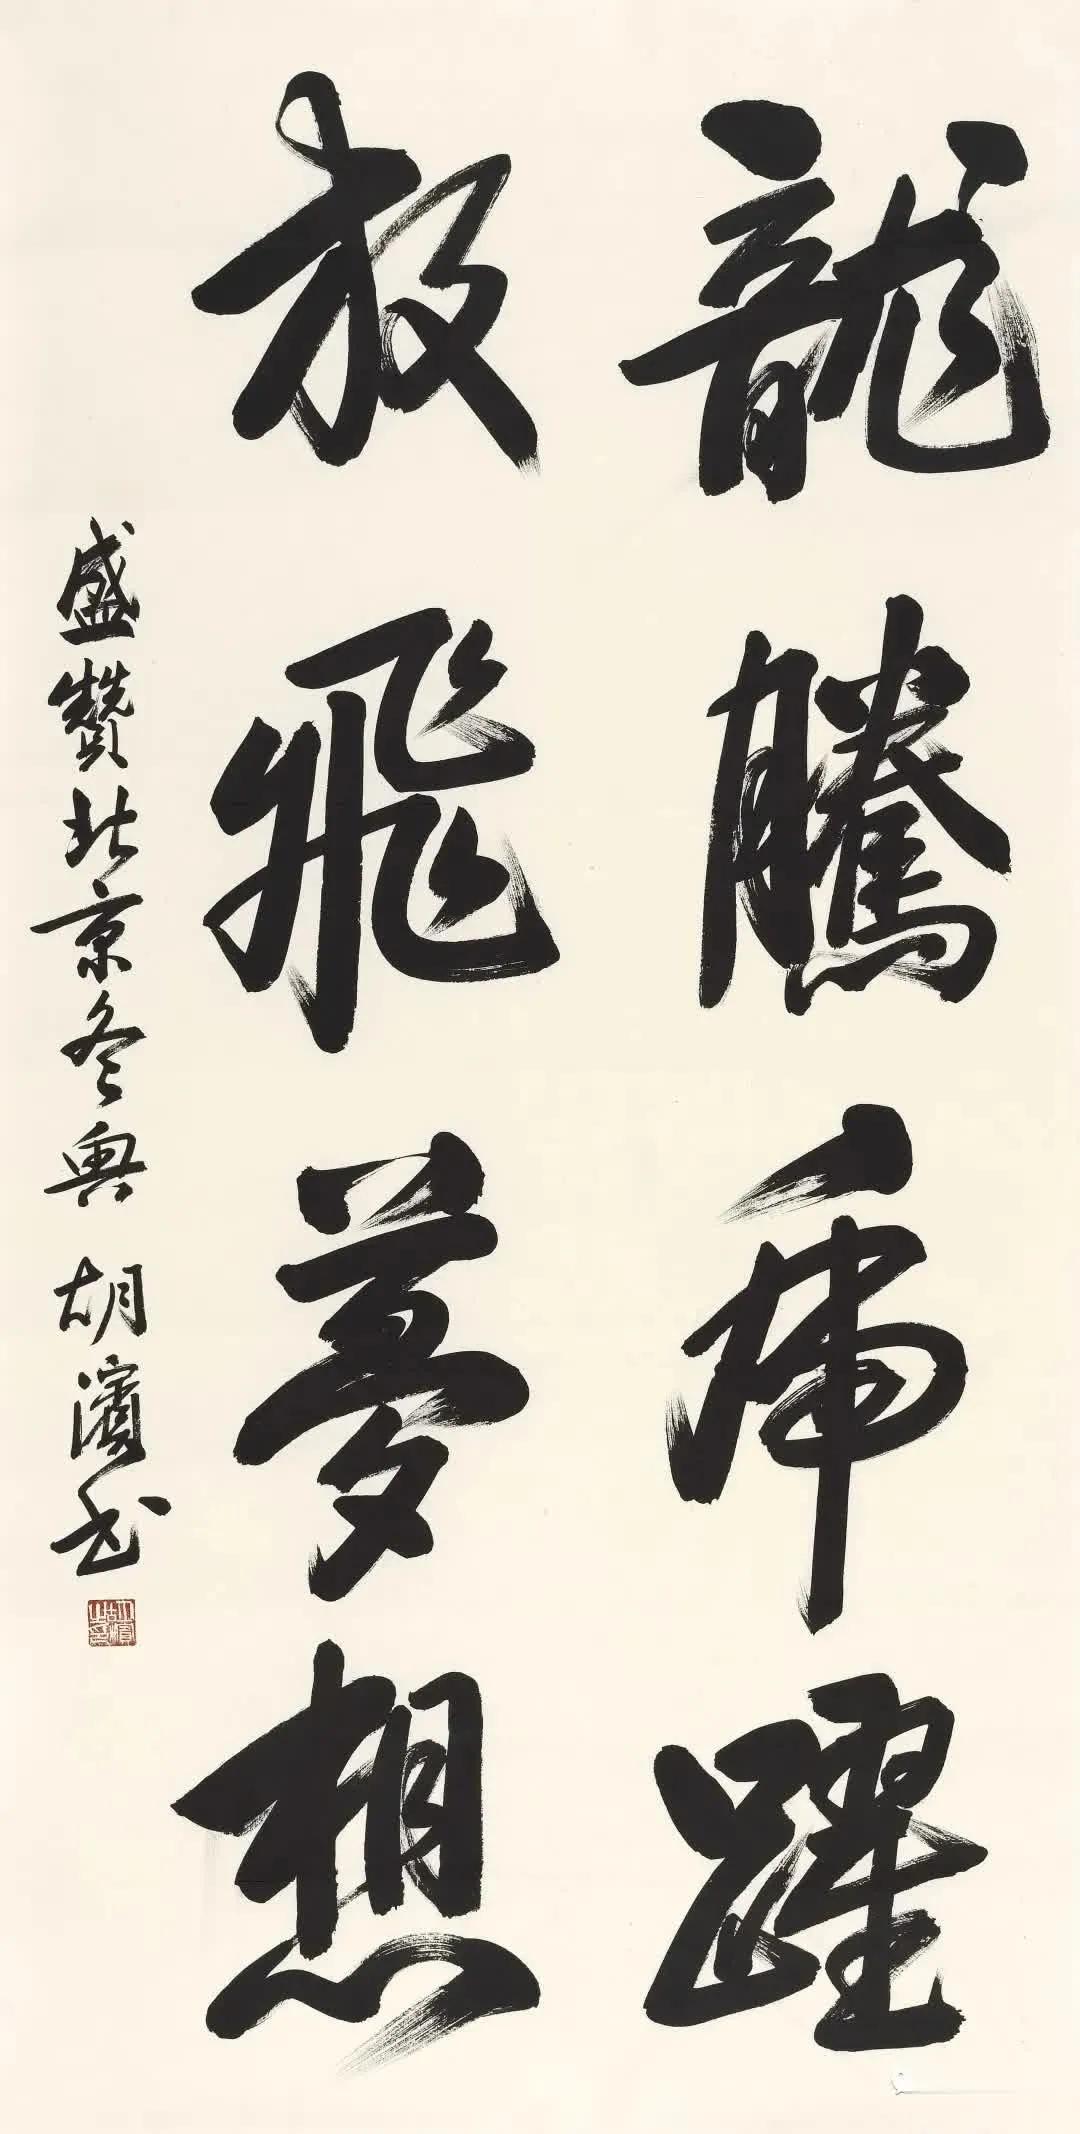 龍騰虎躍
放飛夢想
盛贊北京冬奧 胡濱书